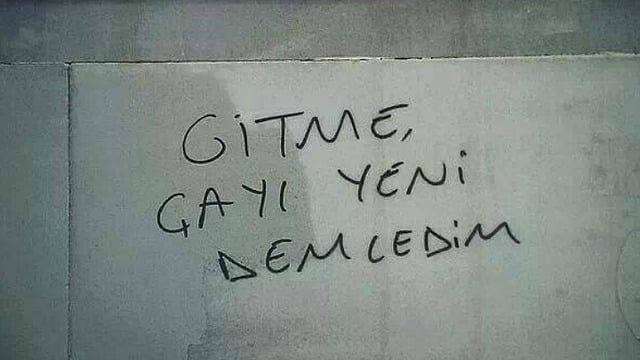 GİTME,
ÇAYI YENİ
DEMLEDİM